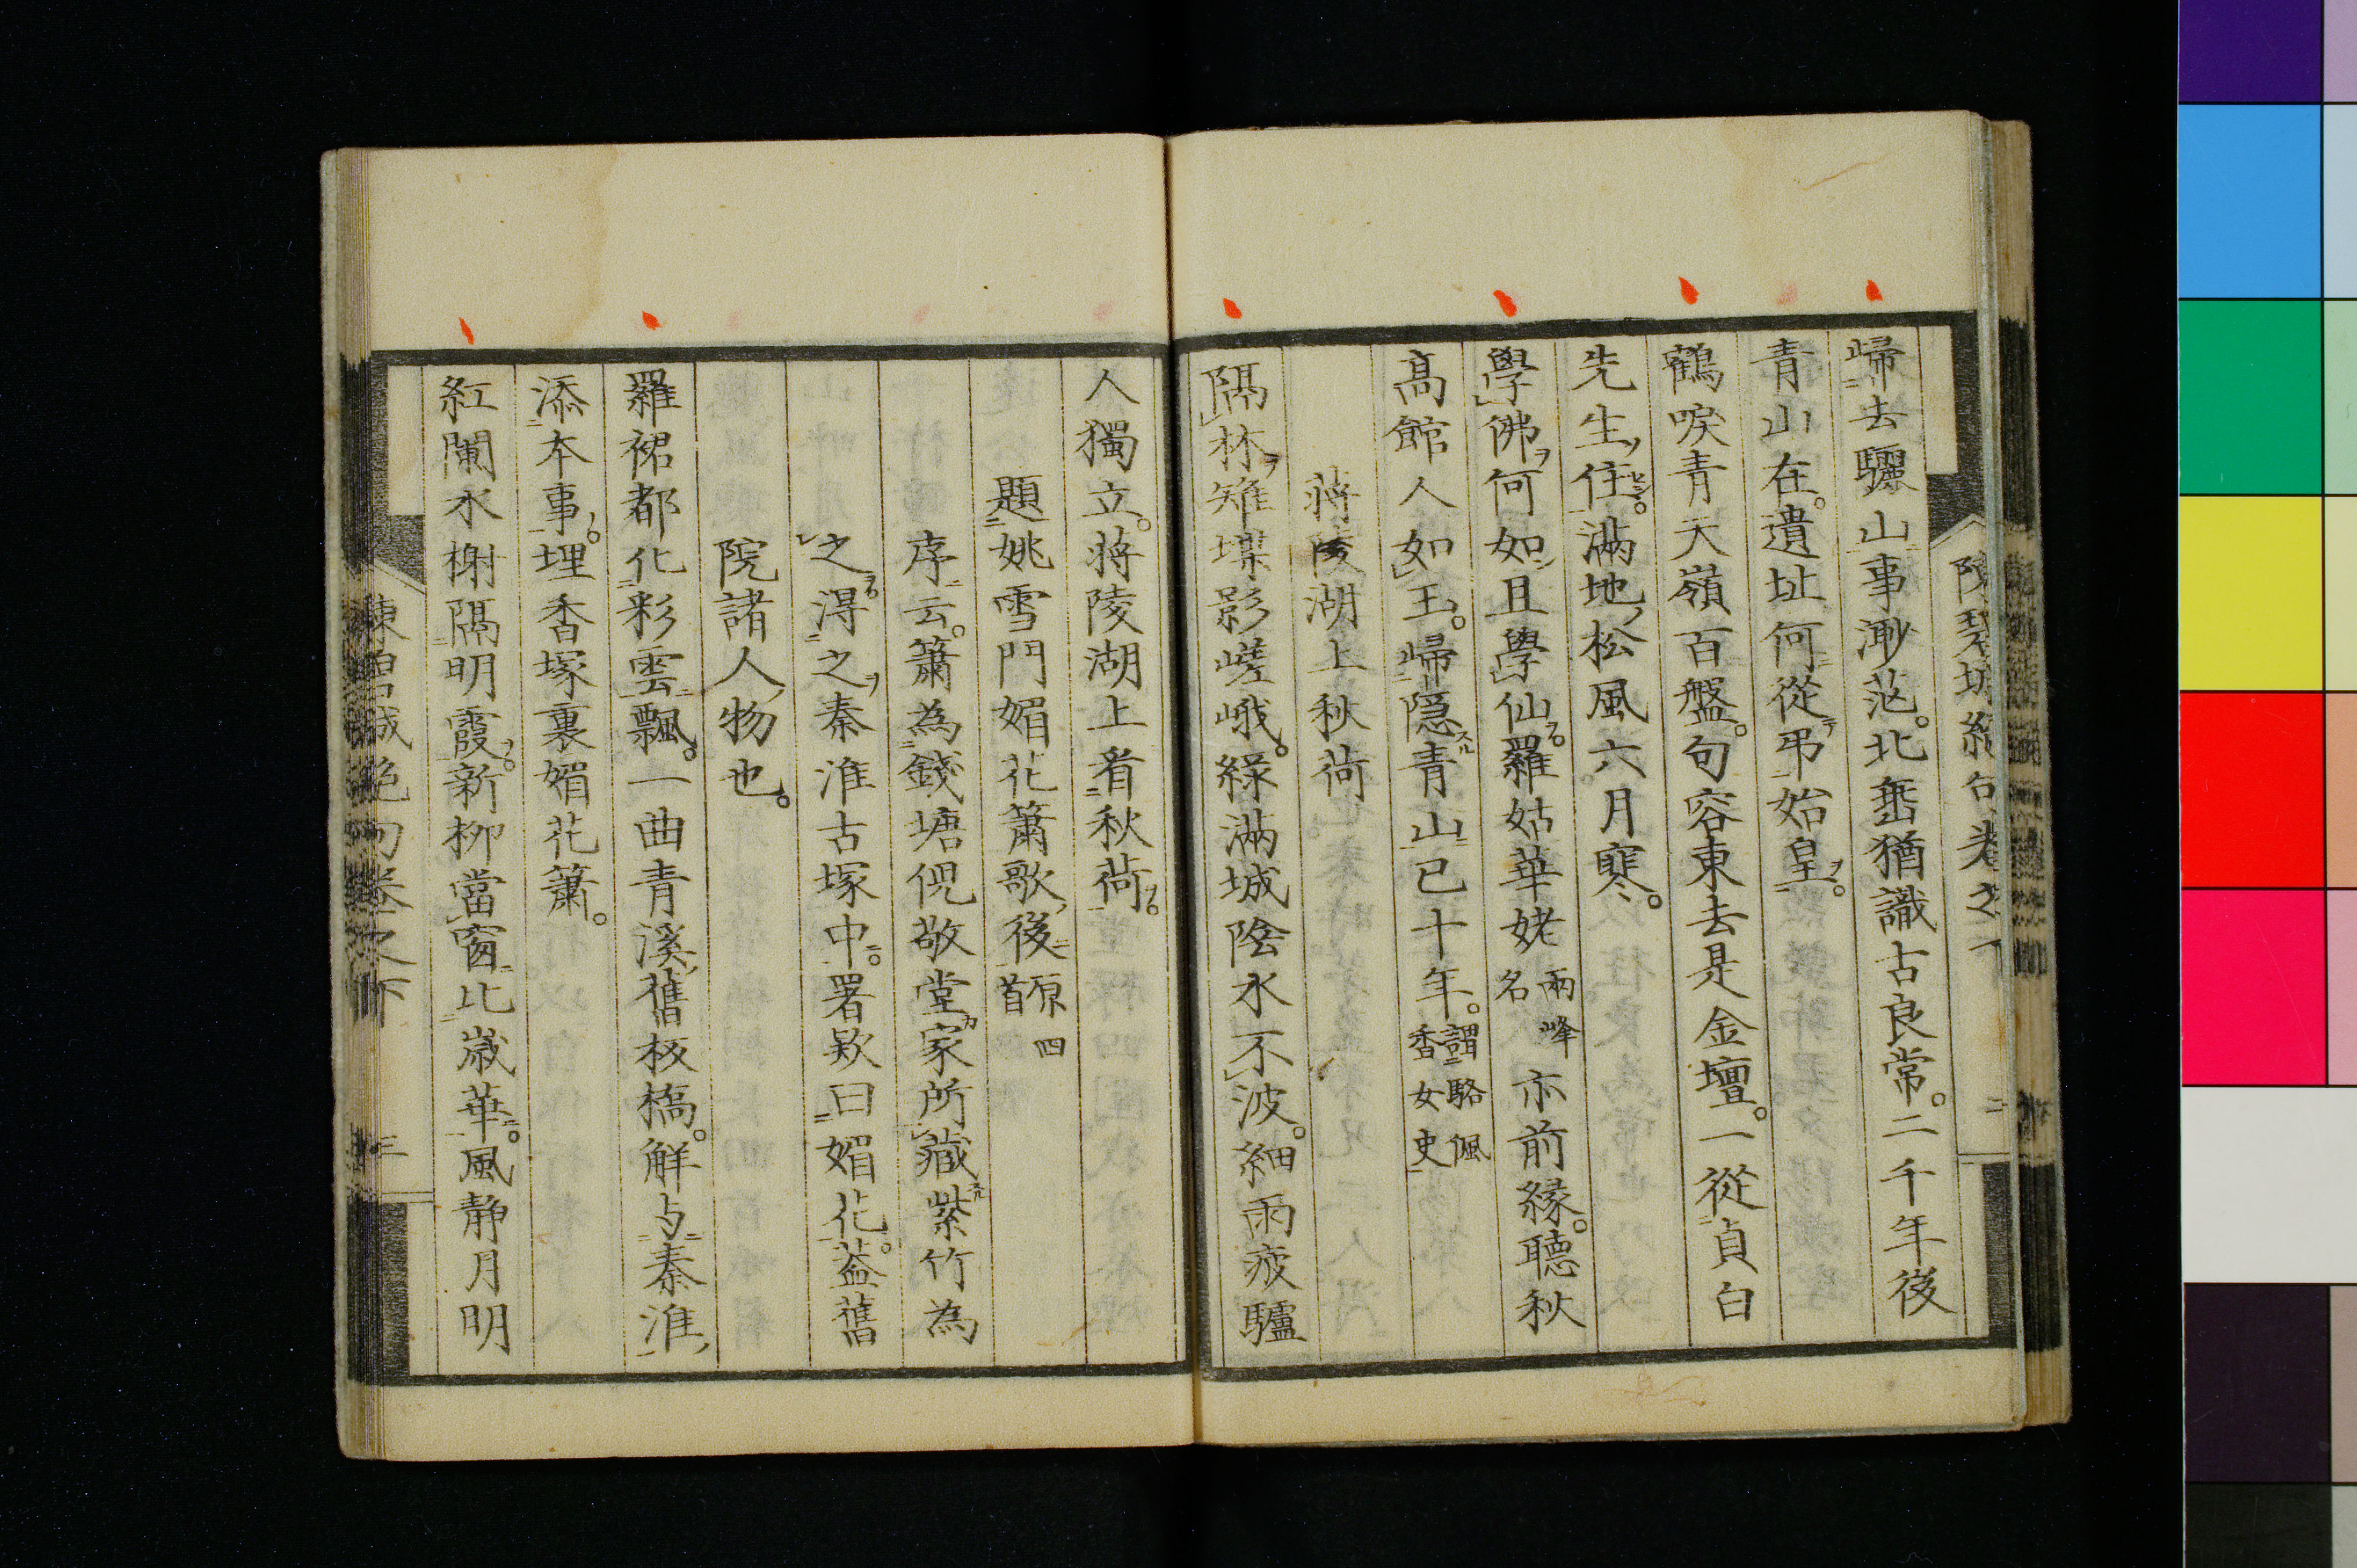 歸去驪山事渺茫。北壑猶識古良常。二千年後
青山在。遺址何從弔始皇。
鶴唳青天嶺百盤。句容東去是金壇。一從貞白
先生住。滿地松風六月寒。
學佛何如且學仙。羅姑華姥兩峰名亦前緣。聽秋
高館人如玉。歸隱青山已十年。謂駱佩香女史
蔣陵湖上秋荷
隔林雉堞影嵯峨。綠滿城陰水不波。細雨疲驢
人獨立。蔣陵湖上看秋荷。
題姚雪門媚花簫歌後原四首
序云。簫為錢塘倪敬堂家所藏紫竹為
之得之秦淮古塚中。署款曰媚花。蓋舊
院諸人物也。
羅裙都化彩雲飄。一曲青溪舊板橋。解与秦淮
添本事。埋香塚裏媚花簫。
紅闌水榭隔明霞。新柳當窗比歲華。風靜月明
陳碧城絕句卷之下
三